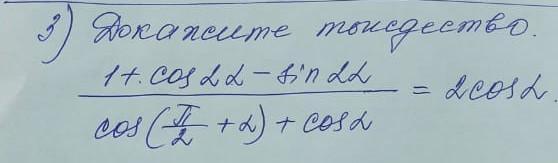 3) Докажите тождество.
(1 + cos 2α − sin 2α) / (cos(π/2 + α) + cos α) = 2 cos α.